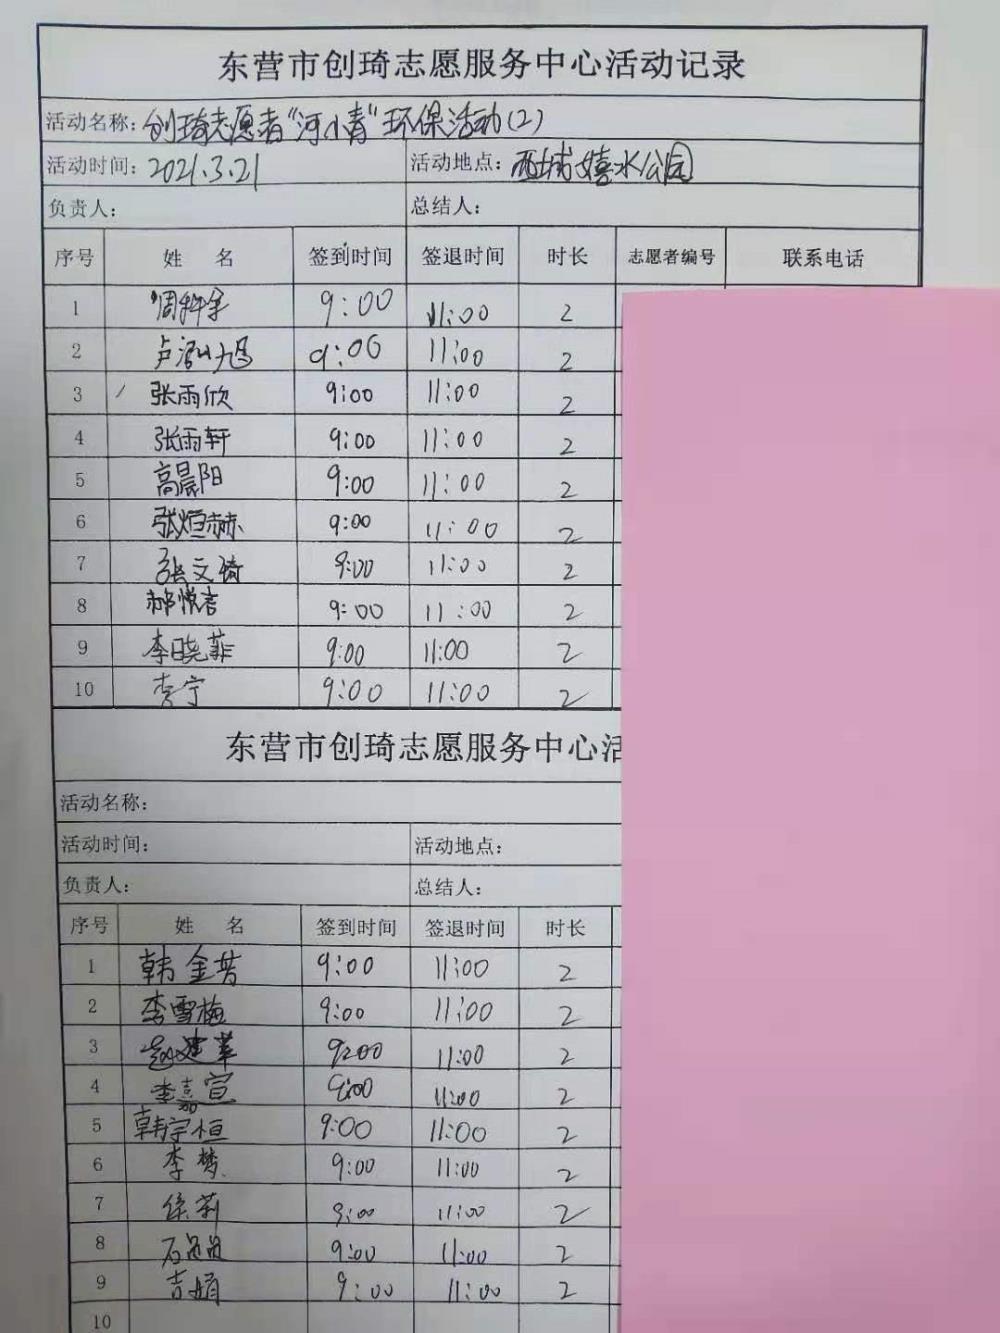 东营市创琦志愿服务中心活动记录
活动名称: 创琦志愿者"河小青"环保活动(2)
活动时间: 2021.3.21 活动地点: 西城嬉水公园
负责人: 总结人:
序号 姓 名 签到时间 签退时间 时长 志愿者编号 联系电话
1 9:00 11:00 2
2 卢泓旭 9:00 11:00 2
3 张雨欣 9:00 11:00 2
4 张雨轩 9:00 11:00 2
5 高晨阳 9:00 11:00 2
6 张烜赫 9:00 11:00 2
7 张文琦 9:00 11:00 2
8 郝悦言 9:00 11:00 2
9 李晓菲 9:00 11:00 2
10 李宁 9:00 11:00 2
东营市创琦志愿服务中心活
活动名称:
活动时间: 活动地点:
负责人: 总结人:
序号 姓 名 签到时间 签退时间 时长
1 韩金芳 9:00 11:00 2
2 李雪梅 9:00 11:00 2
3 赵建革 9:00 11:00 2
4 李嘉宣 9:00 11:00 2
5 韩宇恒 9:00 11:00 2
6 李梦 9:00 11:00 2
7 徐莉 9:00 11:00 2
8 9:00 11:00 2
9 吉娟 9:00 11:00 2
10